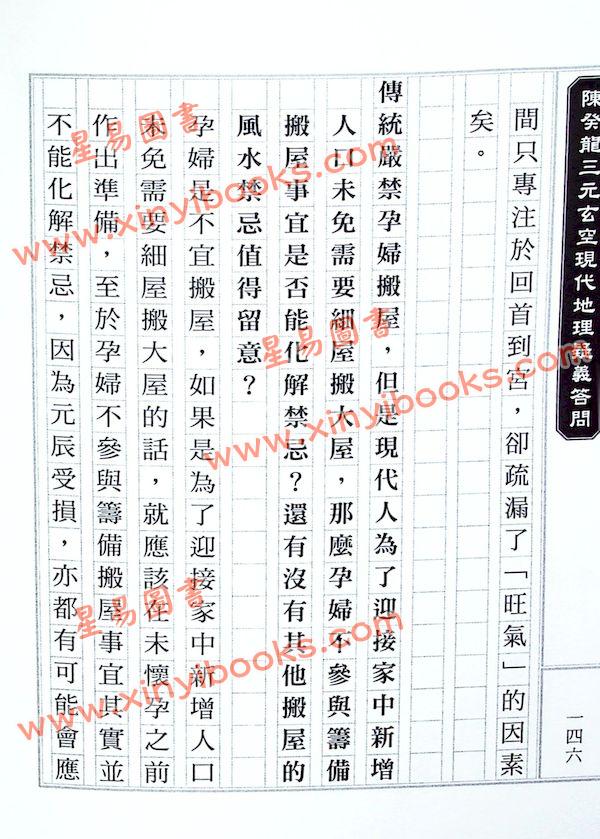 陳癸龍三元玄空現代地理釋義答問
一四六
間只專注於回首到宮，卻疏漏了「旺氣」的因素
矣。
傳統嚴禁孕婦搬屋，但是現代人為了迎接家中新增
人口未免需要細屋搬大屋，那麼孕婦不參與籌備
搬屋事宜是否能化解禁忌？還有沒有其他搬屋的
風水禁忌值得留意？
孕婦是不宜搬屋，如果是為了迎接家中新增人口
未免需要細屋搬大屋的話，就應該在未懷孕之前
作出準備，至於孕婦不參與籌備搬屋事宜其實並
不能化解禁忌，因為元辰受損，亦都有可能會應
星易圖書
www.xinyibooks.com
星易圖書
www.xinyibooks.com
星易圖書
www.xinyibooks.com